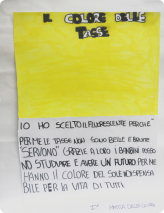 IL COLORE DELLE
TASSE
IO HO SCELTO IL FLUORESCENTE PERCHÉ
PER ME LE TASSE NON SONO BELLE E BUONE
"SERVONO" GRAZIE A LORO I BAMBINI POSSO
NO STUDIARE E AVERE UN FUTURO PER ME
HANNO IL COLORE DEL SOLE INDISPENSA
BILE PER LA VITA DI TUTTI